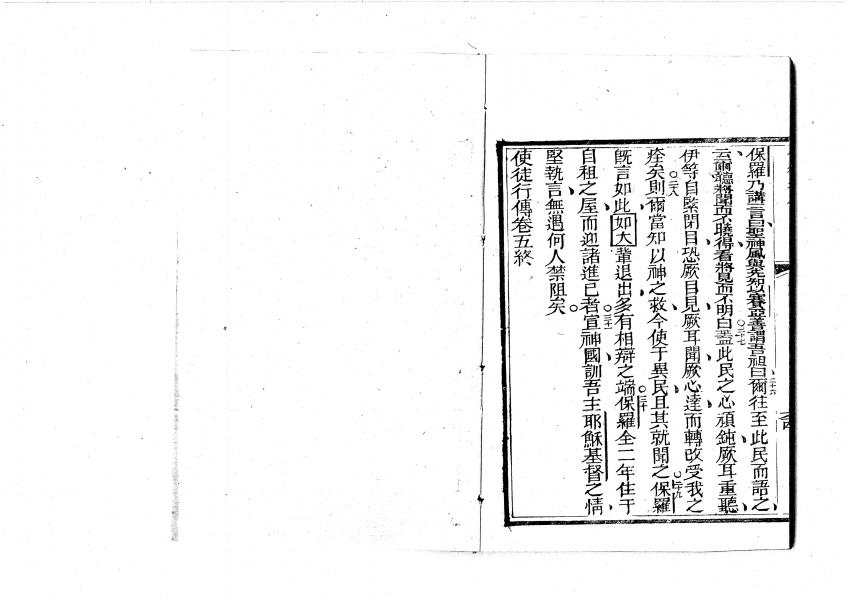 保羅乃講一言曰聖神風與先知以賽亞善謂吾祖曰爾往至此民而語之
云爾聽將聞而不曉得看將見而不明白蓋此民之心頑鈍厥耳重聽
伊等自緊閉目恐厥目見厥耳聞厥心達而轉改受我之
痊矣則爾當知以神之救今使于異民且其就聞之保羅
旣言如此如大輩退出多有相辯之端保羅全二年住于
自租之屋而迎諸進已者宣神國訓吾主耶穌基督之情
堅執言無遏何人禁阻矣
使徒行傳卷五終